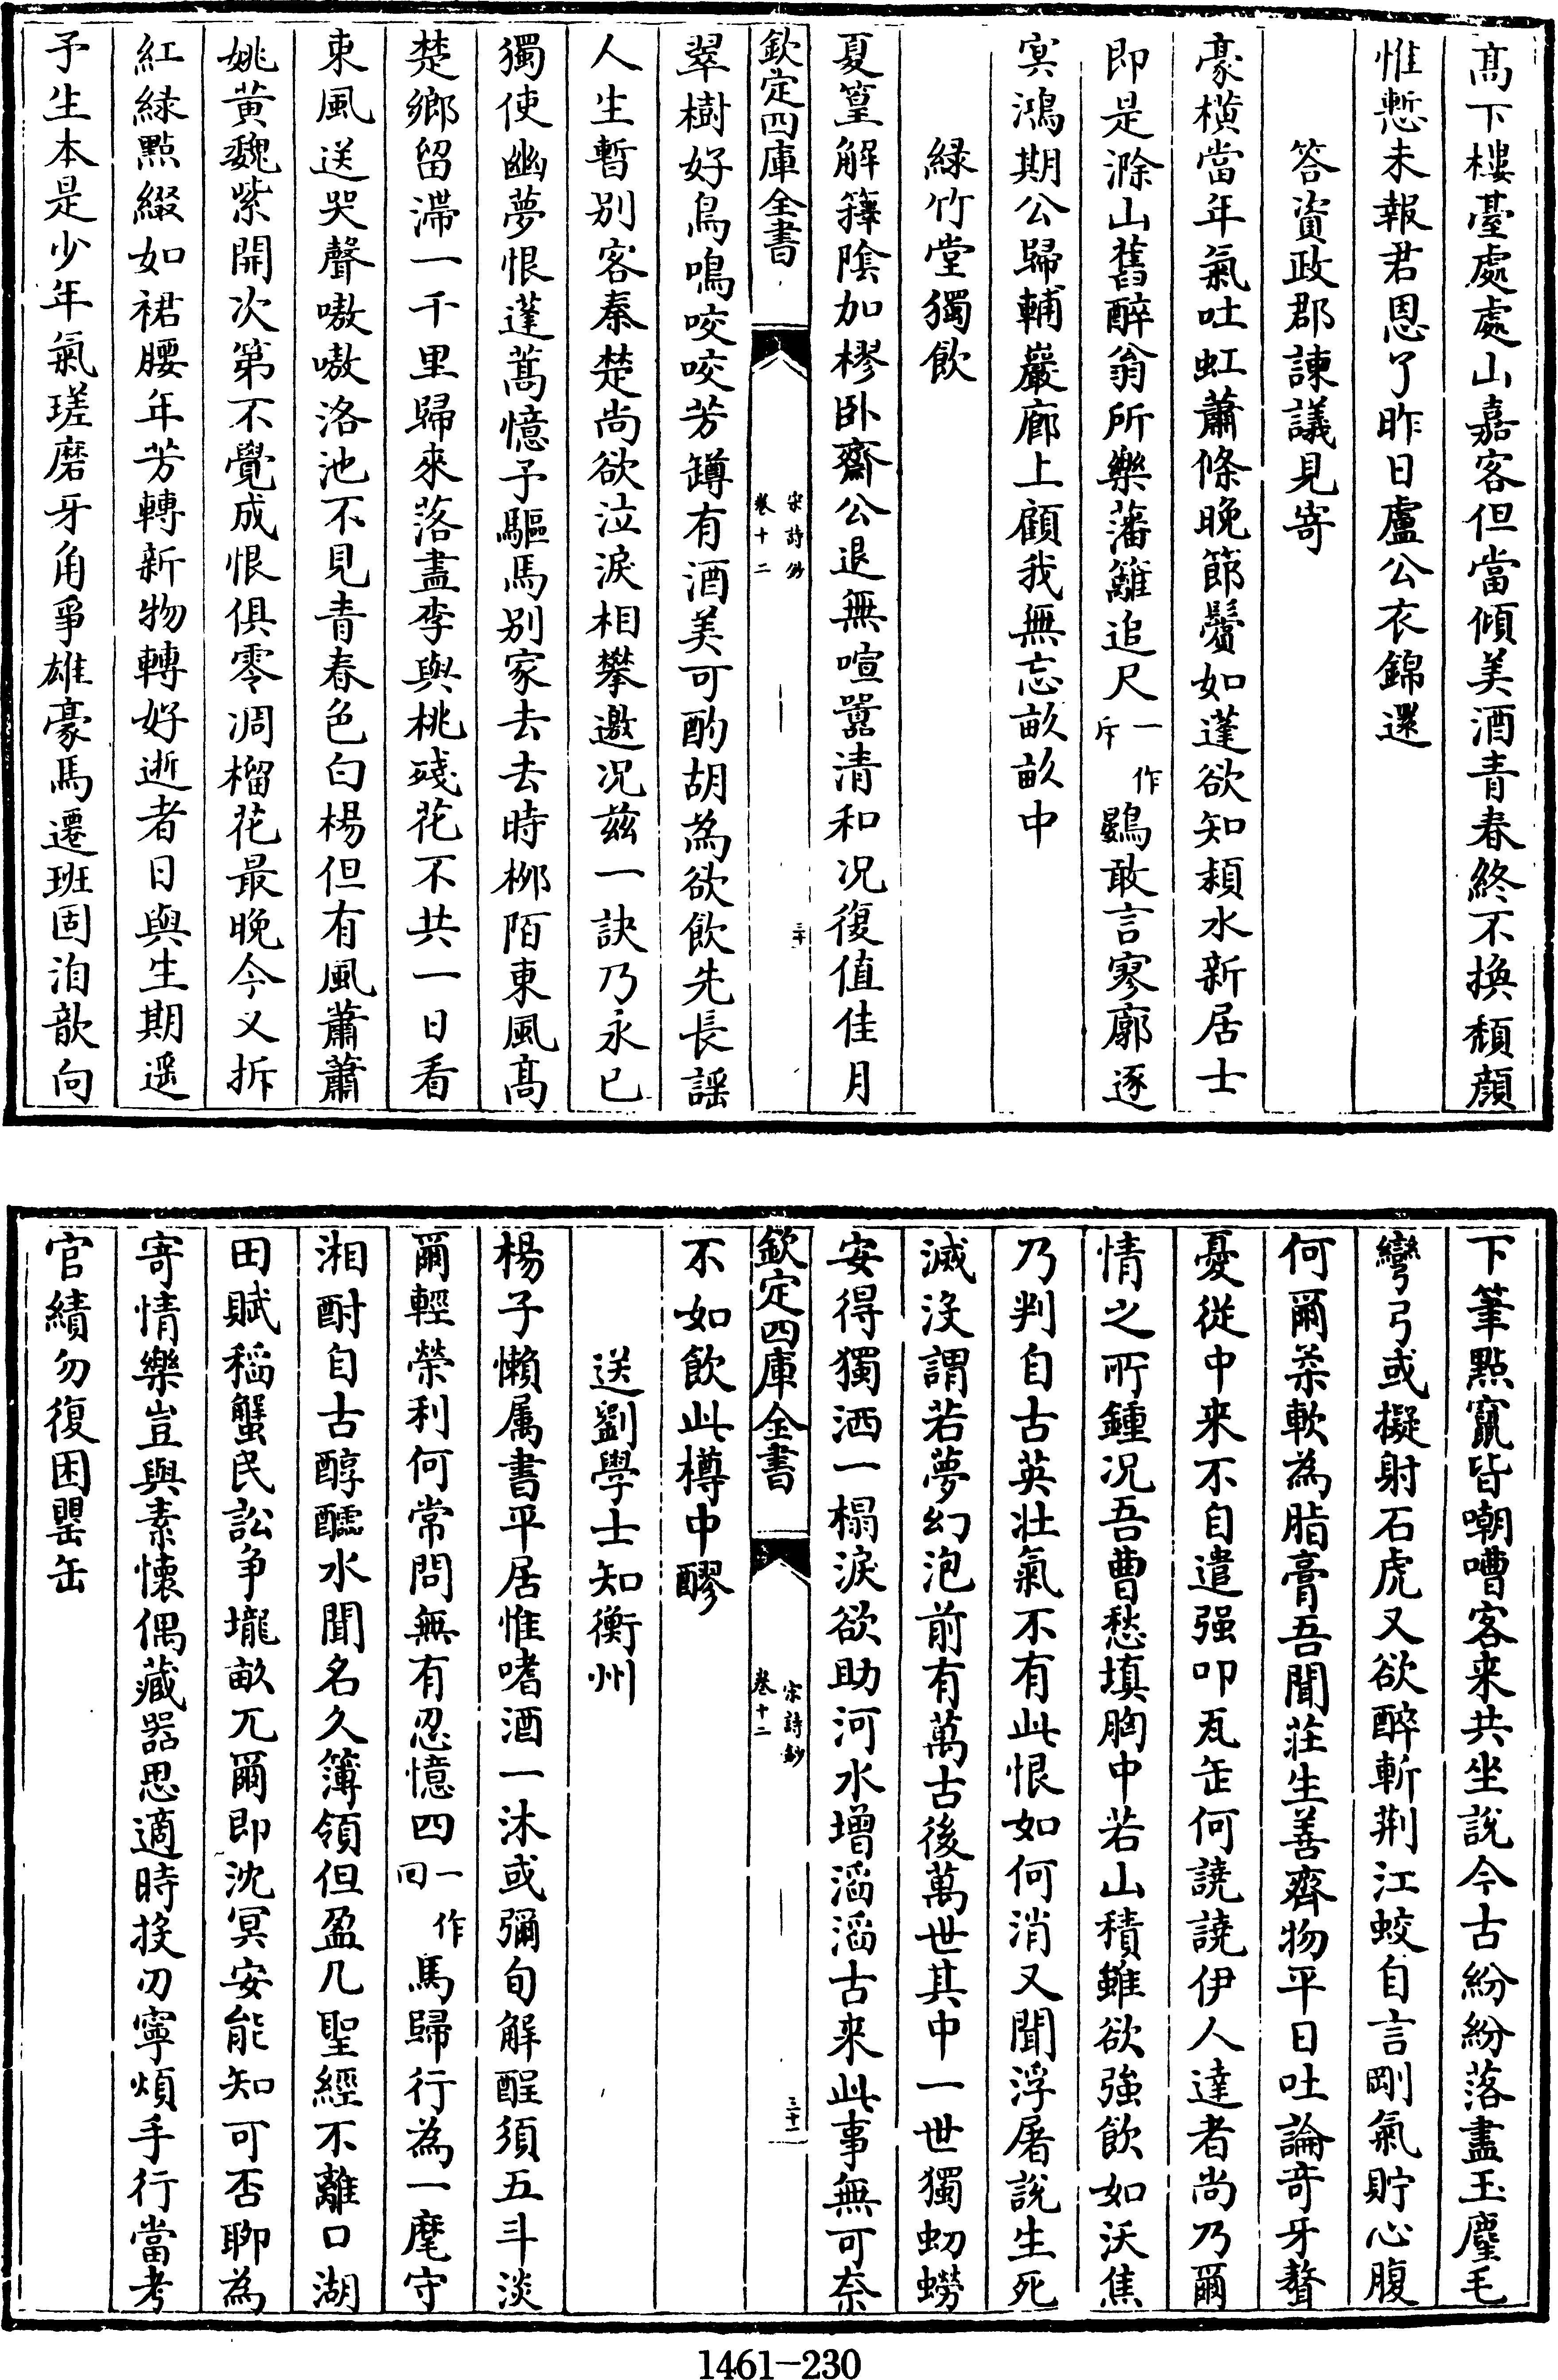 高下樓臺處處山嘉客但當傾美酒青春終不換頹顔
惟慙未報君恩了昨日盧公衣錦還
答資政郡諫議見寄
豪横當年氣吐虹蕭條晚節鬢如蓬欲知潁水新居士
即是滁山舊醉翁所樂藩籬追尺一作斥鷃敢言寥廓逐
冥鴻期公歸輔巖廊上顧我無忘畝畝中
緑竹堂獨飲
夏篁解籜陰加樛卧齋公退無喧囂清和况復值佳月
欽定四庫全書
宋詩鈔
卷十二
三十
翠樹好鳥鳴咬咬芳罇有酒美可酌胡為欲飲先長謡
人生暫别客秦楚尚欲泣淚相攀邀况兹一訣乃永已
獨使幽夢恨蓬蒿憶予驅馬别家去去時栁陌東風高
楚鄉留滯一千里歸來落盡李與桃殘花不共一日看
東風送哭聲嗷嗷洛池不見青春色白楊但有風蕭蕭
姚黄魏紫開次第不覺成恨俱零凋榴花最晚今又拆
紅緑點綴如裙腰年芳轉新物轉好逝者日與生期遥
予生本是少年氣瑳磨牙角爭雄豪馬遷班固洎歆向
下筆點竄皆嘲嘈客來共坐說今古紛紛落盡玉麈毛
彎弓或擬射石虎又欲醉斬荆江蛟自言剛氣貯心腹
何爾柔軟為脂膏吾聞莊生善齊物平日吐論奇牙聱
憂從中來不自遣强叩瓦缶何譊譊伊人達者尚乃爾
情之所鍾况吾曹愁填胸中若山積雖欲強飲如沃焦
乃判自古英壯氣不有此恨如何消又聞浮屠說生死
滅没謂若夢幻泡前有萬古後萬世其中一世獨虭蟧
安得獨洒一榻淚欲助河水增滔滔古來此事無可奈
欽定四庫全書
宋詩鈔
卷十二
三十一
不如飲此樽中醪
送劉學士知衡州
楊子懶属書平居惟嗜酒一沐或彌旬解酲須五斗淡
爾輕榮利何常問無有忍憶四一作回馬歸行為一麾守
湘酎自古醇醽水聞名久簿領但盈几聖經不離口湖
田賦稻蟹民訟争壠畝兀爾即沈冥安能知可否聊為
寄情樂豈與素懷偶藏器思適時投刃寧煩手行當考
官績勿復困罌缶
1461-230